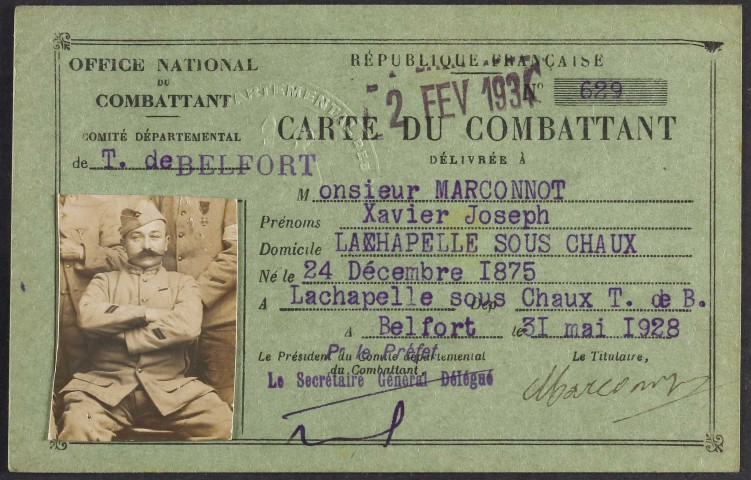 OFFICE NATIONAL
DU
COMBATTANT
COMITÉ DÉPARTEMENTAL
de T. de BELFORT
RÉPUBLIQUE FRANÇAISE
2 FEV 1934
N° 629
CARTE DU COMBATTANT
DÉLIVRÉE À
Monsieur MARCONNOT
Prénoms Xavier Joseph
Domicile LACHAPELLE SOUS CHAUX
Né le 24 Décembre I875
A Lachapelle sous Chaux Dép T. de B.
A Belfort le 3I mai I928
Le Président du Comité départemental
du Combattant,
Pr le Préfet
Le Secrétaire Général Délégué
Le Titulaire,
Marconnot